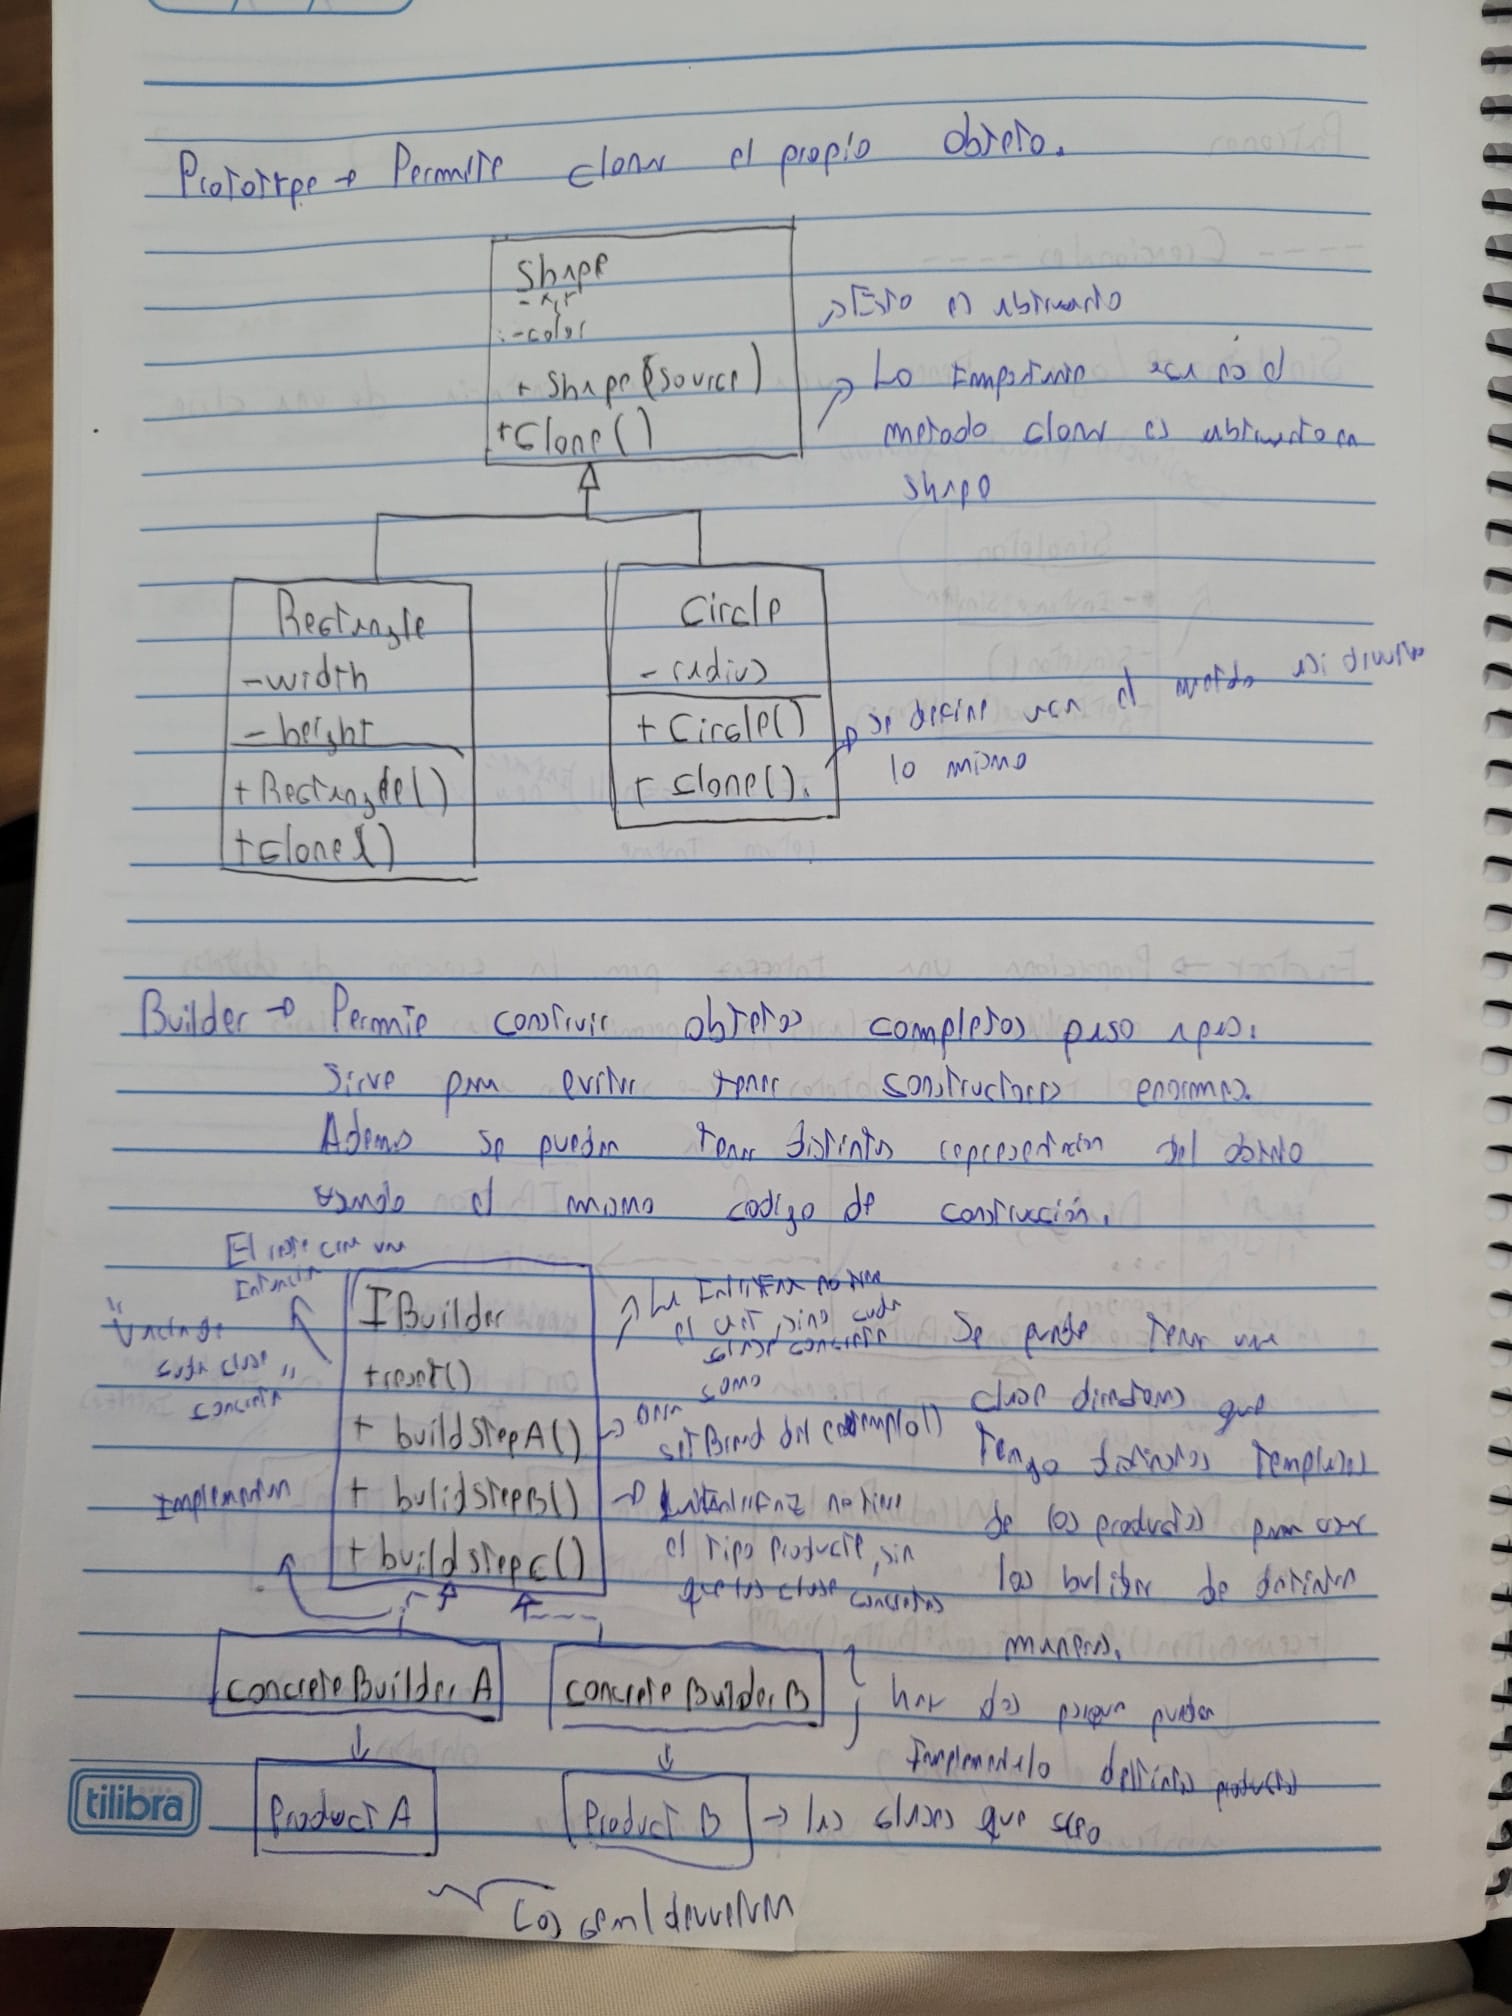 Prototype → Permite clonar el propio objeto.
Shape
- x, y
- color
+ Shape(source)
+ Clone()
→ Esto es abstracto
→ Lo importante acá es el
metodo clonar es abstracto en
shape
Rectangle
- width
- height
+ Rectangle()
+ Clone()
Circle
- radius
+ Circle()
+ Clone().
→ Se define acá el metodo
lo mismo
Builder → Permite construir objetos completos paso a paso.
Sirve para evitar tener constructores enormes.
Ademas se pueden tener distintas representacion del objeto
usando el mismo codigo de construcción.
El
IBuilder
+ reset()
+ buildStepA()
+ bulidStepB()
+ buildStepC()
cada clase
concreta
Implementan
→ La Interfaz no tiene
el , sino cada
clase concreta
como
setBrand del
→ La interfaz no tiene
el tipo producto, sin
que las clase concretas
Se puede tener una
clase que
tengo distintos templates
de los productos para usar
los de distintas
maneras.
concreteBuilder A
concrete Builder B
hay dos porque pueden
Implementalo distintos productos
Product A
Product B
→ las clases que
Los
tilibra